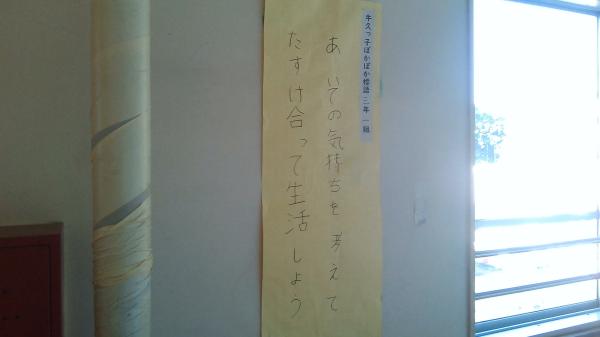 牛久っ子ぽかぽか標語 三年 一組
あいての気持ちを考えて
たすけ合って生活しよう